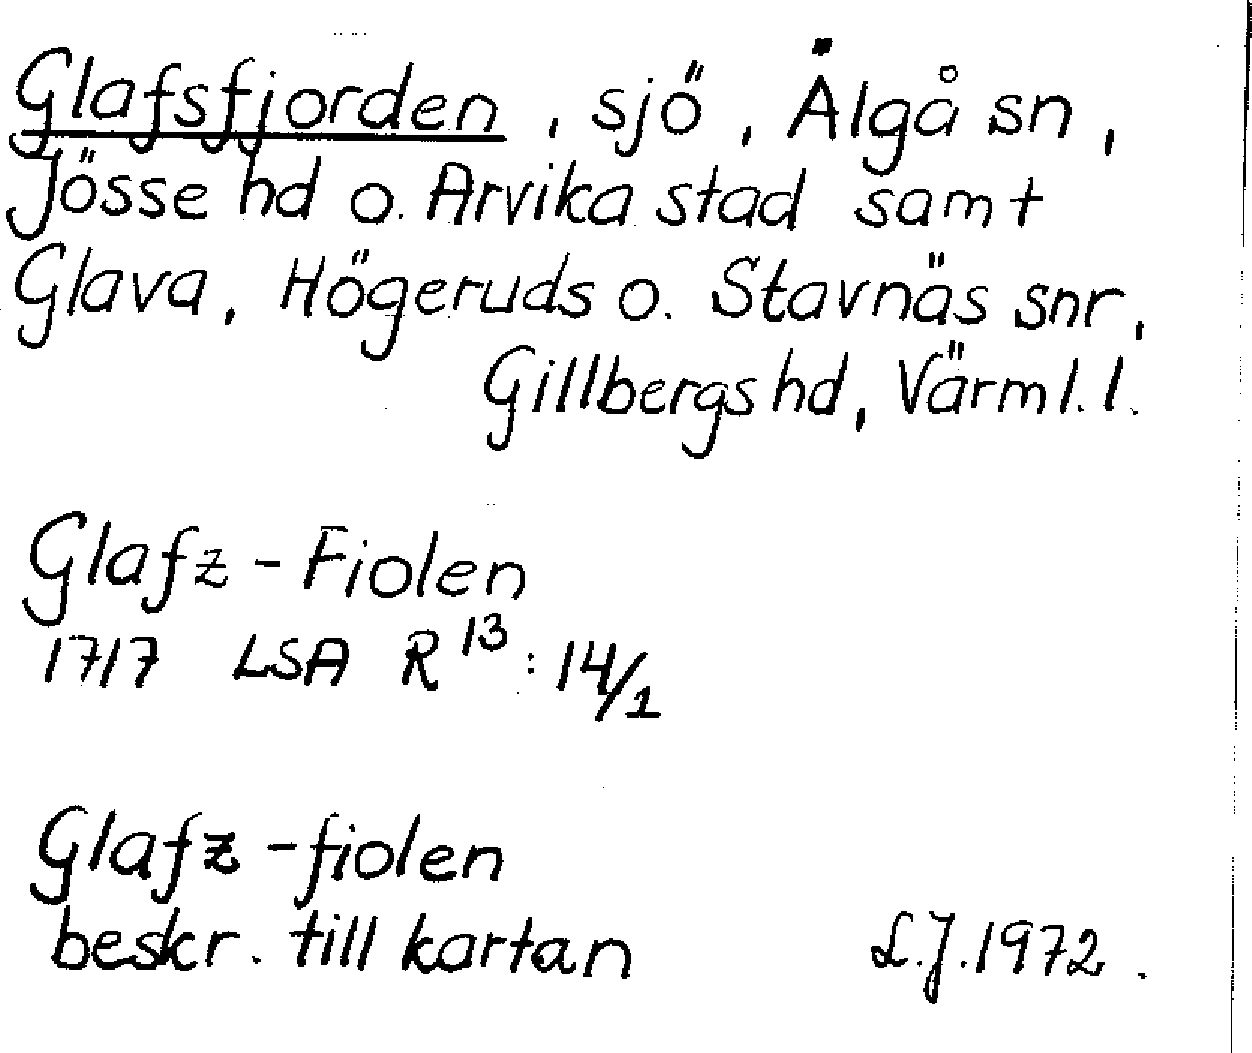 Glafsfjorden, sjö, Älgå sn,
Jösse hd o. Arvika stad samt
Glava, Högeruds o. Stavnäs snr,
Gillbergs hd, Värml. l.
Glafz-Fiolen
1717 LSA R 13:14/1
Glafz-fiolen
beskr. till kartan L.J. 1972.